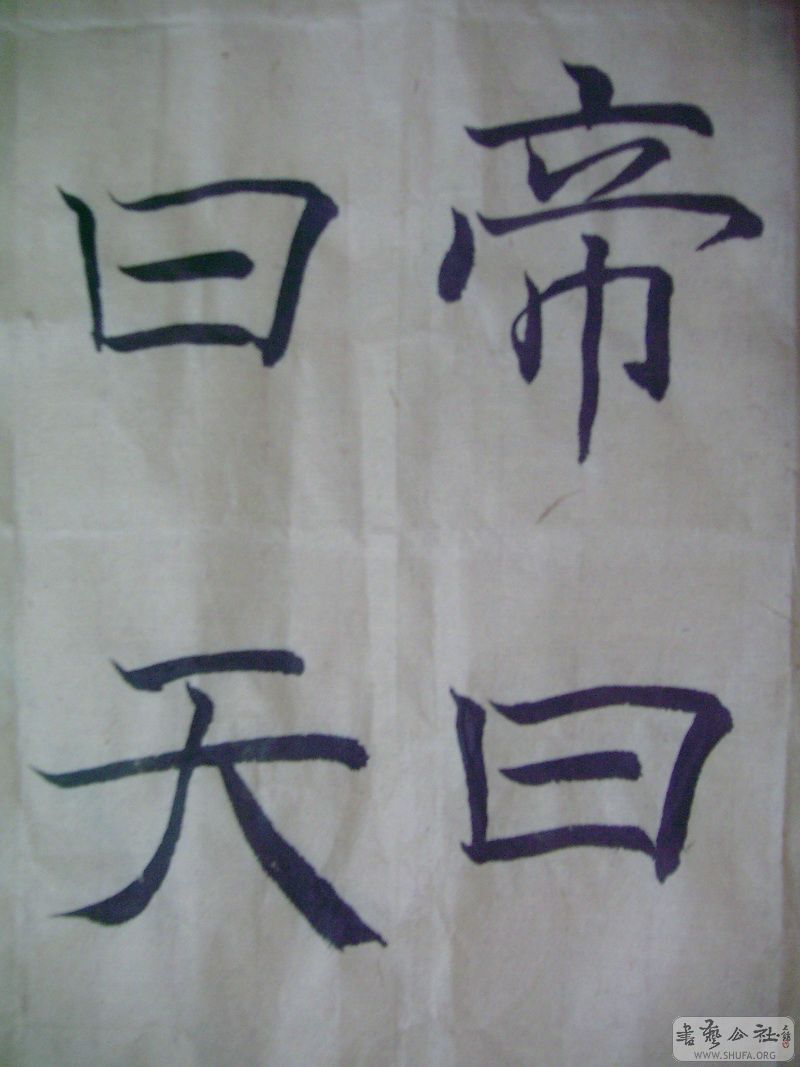 帝曰
曰天
書藝公社
WWW.SHUFA.ORG